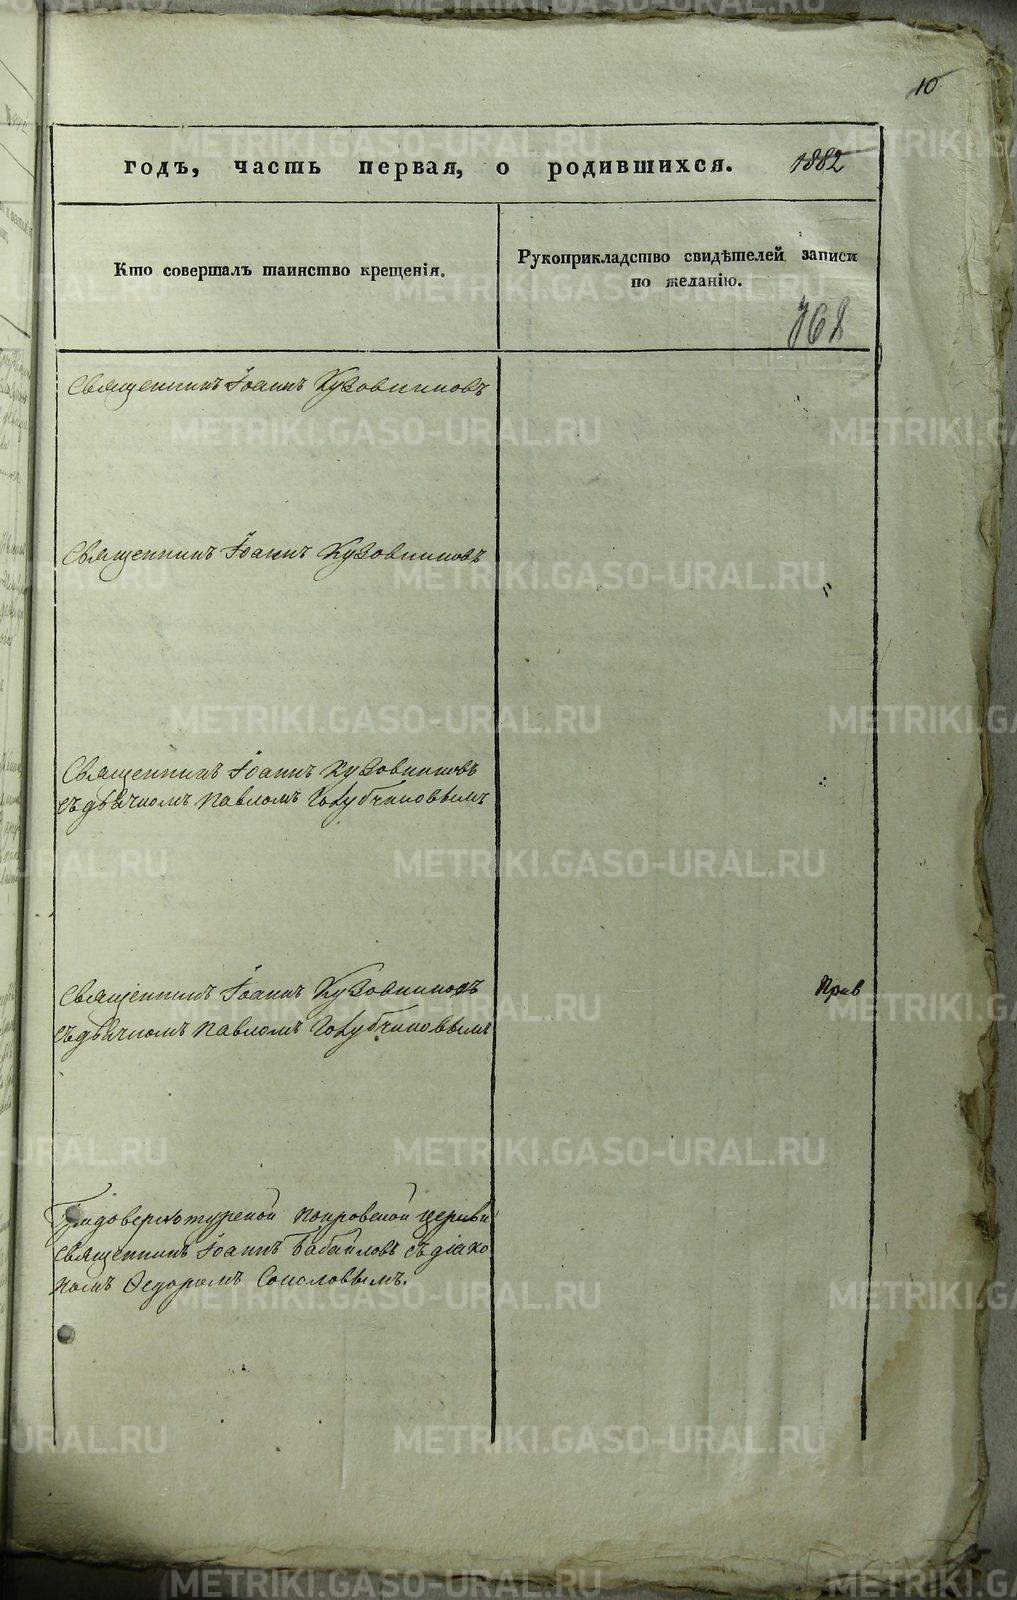 10
годъ, часть первая, о родившихся. 1882
Кто совершалъ таинство крещенія.
Рукоприкладство свидѣтелей записи
по желанію.
Священникъ Іоаннъ Кузовниковъ
Священникъ Іоаннъ Кузовниковъ
Священникъ Іоаннъ Кузовниковъ
съ дьячкомъ Павломъ Голубчиковымъ
Священникъ Іоаннъ Кузовниковъ
съ дьячкомъ Павломъ Голубчиковымъ
Градоверхотурской Покровской церкви
священникъ Іоаннъ Бабайловъ съ діако
номъ Ѳедоромъ Соколовымъ.
METRIKI.GASO-URAL.RU